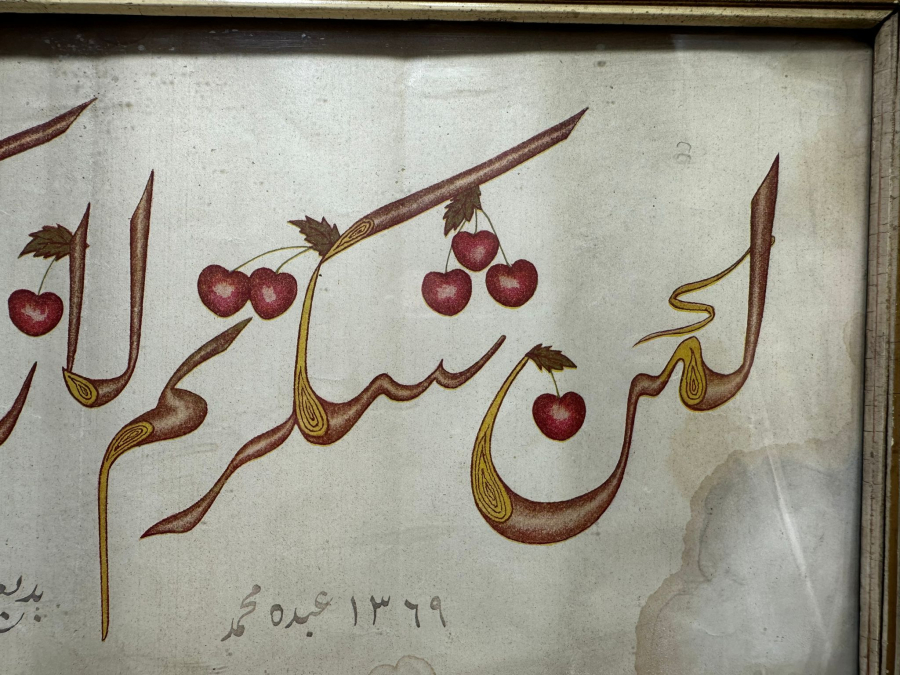 لئن شكرتم لاز
١٣٦٩ عبده محمد